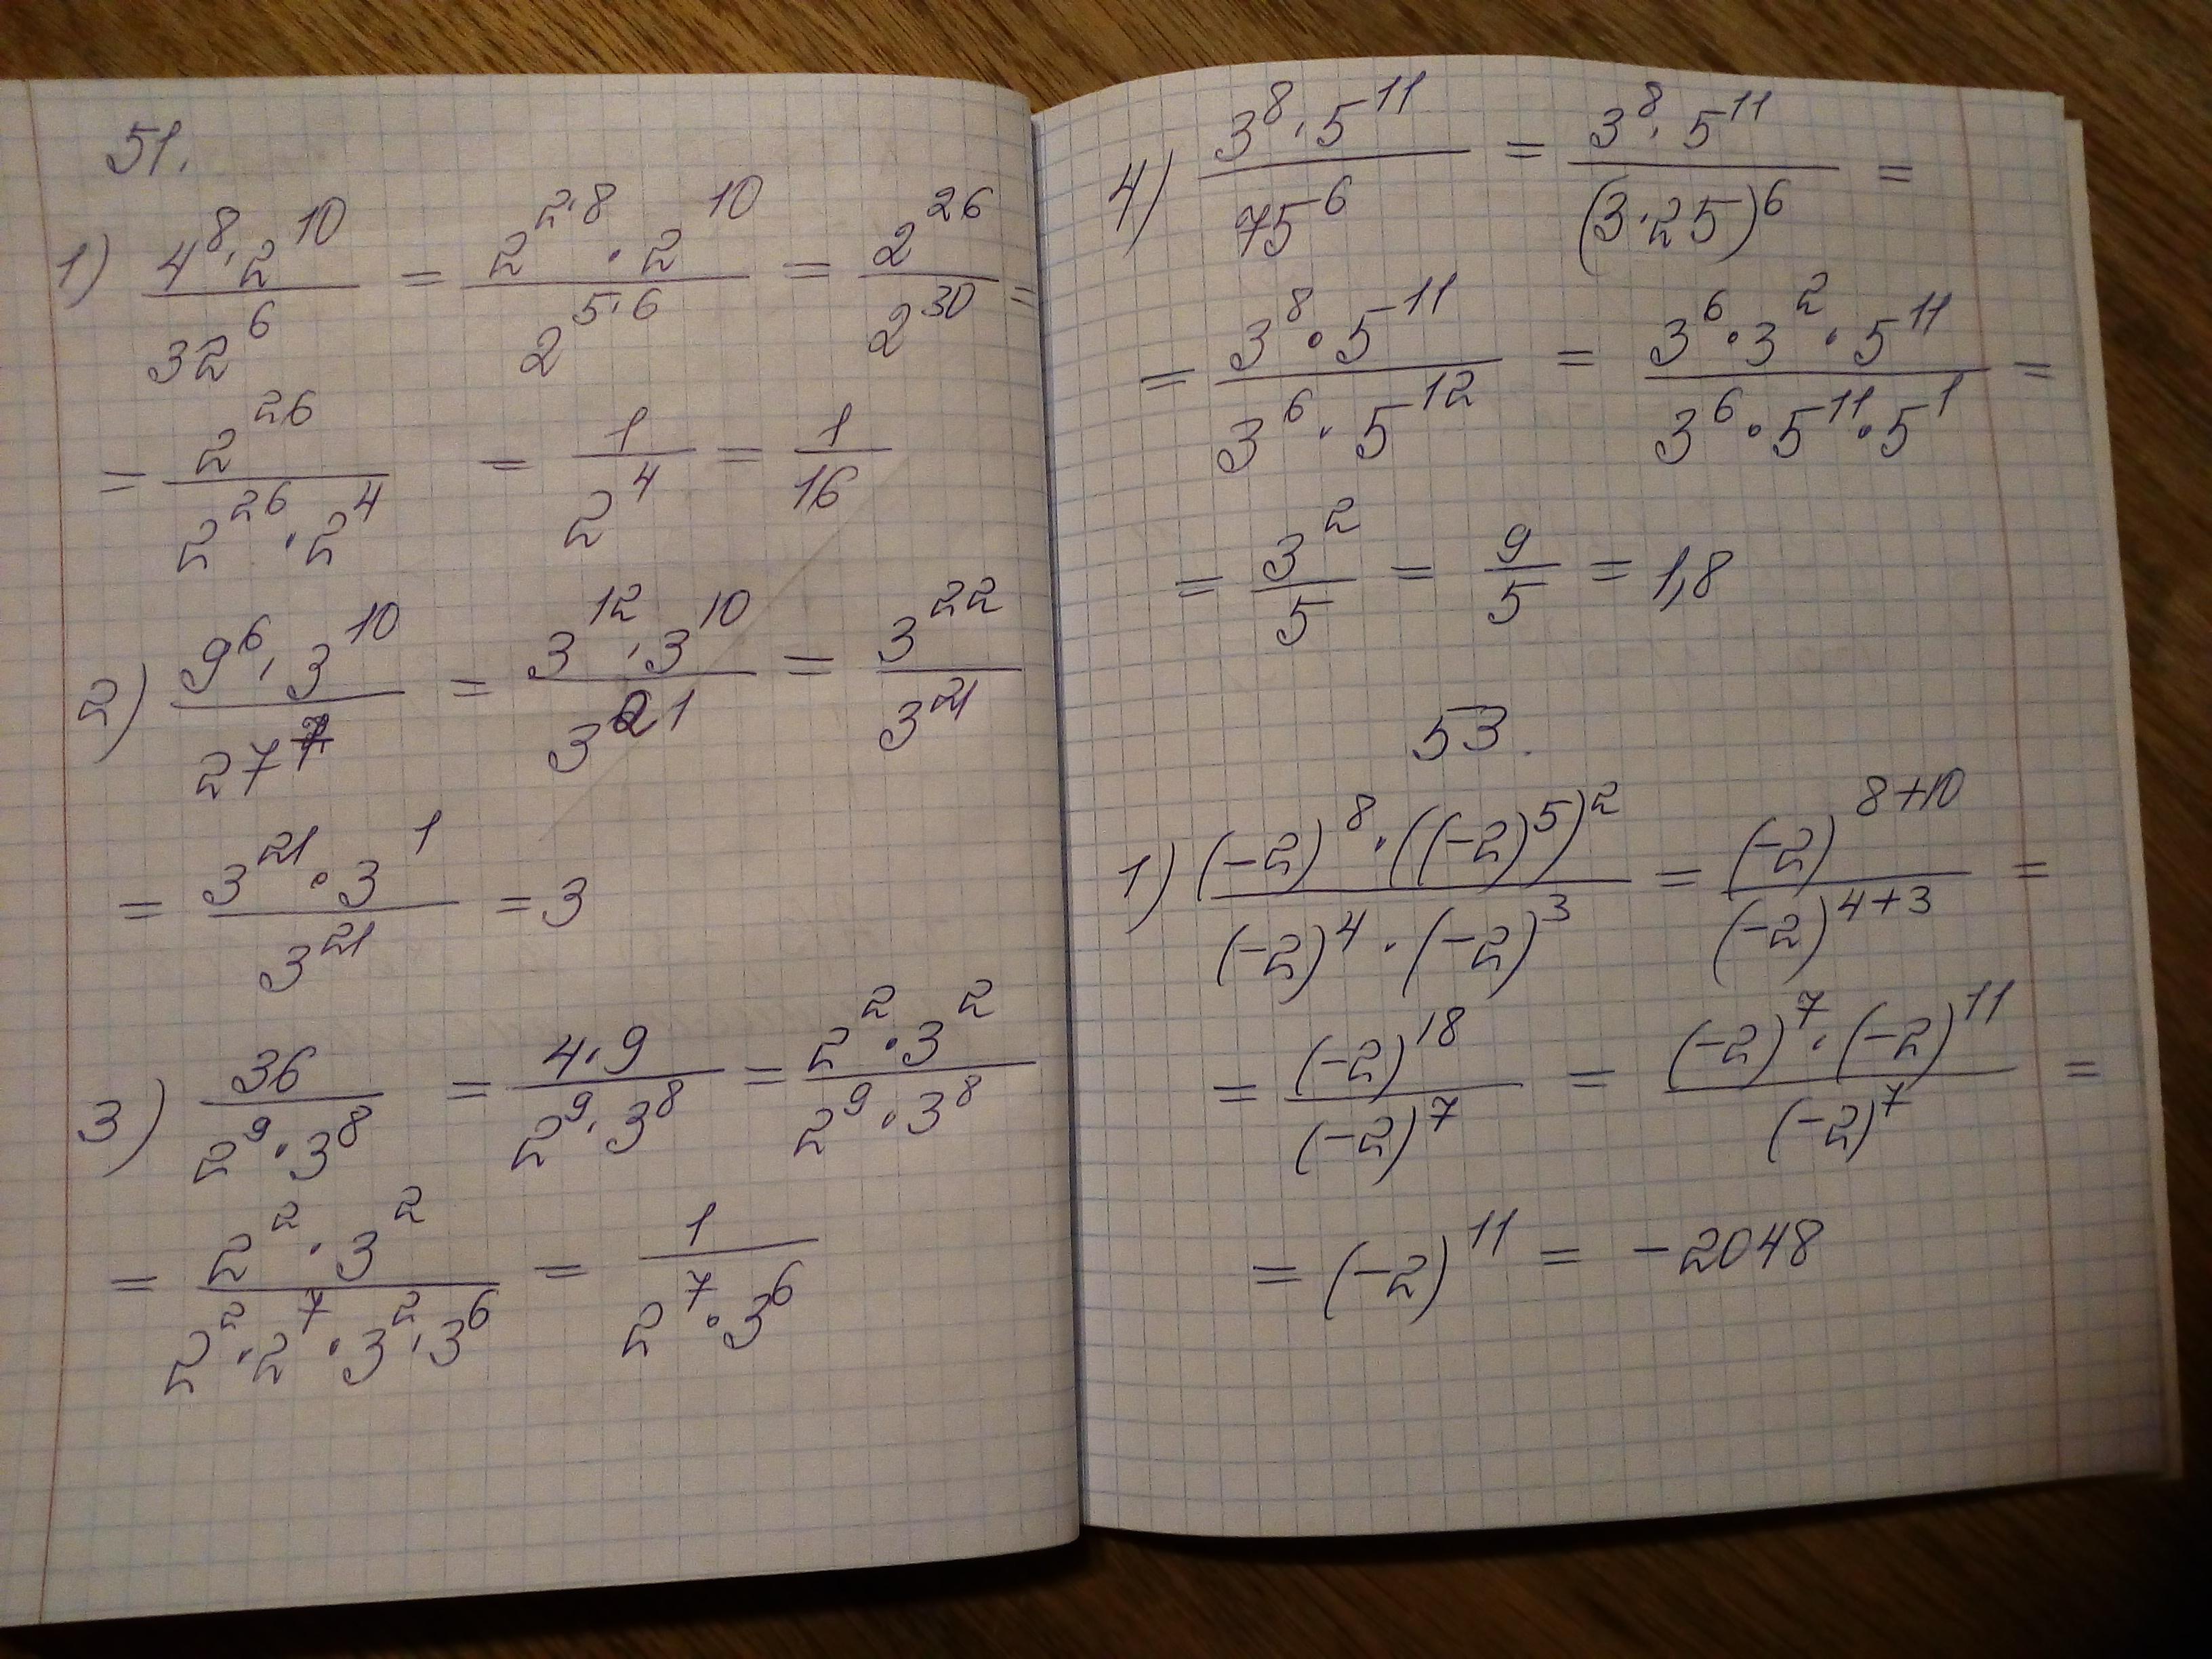 51.
1) \frac{4^8 · 2^{10}}{32^6} = \frac{2^{2·8} · 2^{10}}{2^{5·6}} = \frac{2^{26}}{2^{30}} =
= \frac{2^{26}}{2^{26} · 2^4} = \frac{1}{2^4} = \frac{1}{16}
2) \frac{9^6 · 3^{10}}{27^7} = \frac{3^{12} · 3^{10}}{3^{21}} = \frac{3^{22}}{3^{21}}
= \frac{3^{21} · 3^1}{3^{21}} = 3
3) \frac{36}{2^9 · 3^8} = \frac{4 · 9}{2^9 · 3^8} = \frac{2^2 · 3^2}{2^9 · 3^8}
= \frac{2^2 · 3^2}{2^2 · 2^7 · 3^2 · 3^6} = \frac{1}{2^7 · 3^6}
4) \frac{3^8 · 5^{11}}{75^6} = \frac{3^8 · 5^{11}}{(3 · 25)^6} =
= \frac{3^8 · 5^{11}}{3^6 · 5^{12}} = \frac{3^6 · 3^2 · 5^{11}}{3^6 · 5^{11} · 5^1} =
= \frac{3^2}{5} = \frac{9}{5} = 1,8
53.
1) \frac{(-2)^8 · ((-2)^5)^2}{(-2)^4 · (-2)^3} = \frac{(-2)^{8+10}}{(-2)^{4+3}} =
= \frac{(-2)^{18}}{(-2)^7} = \frac{(-2)^7 · (-2)^{11}}{(-2)^7} =
= (-2)^{11} = -2048